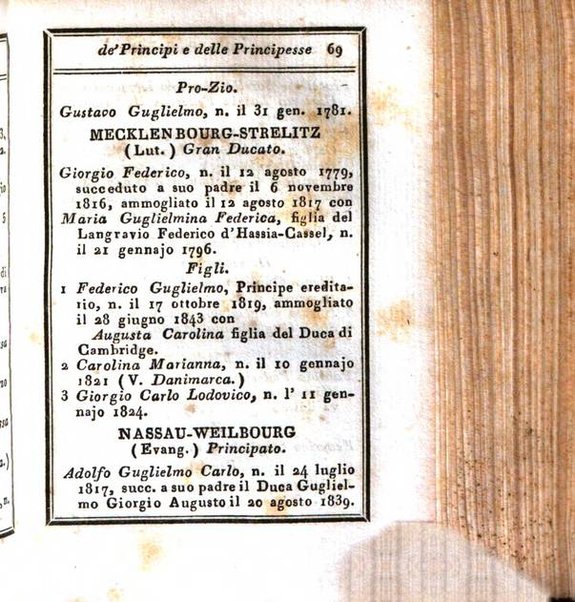 de' Principi e delle Principesse 69
Pro-Zio.
Gustavo Guglielmo, n. il 31 gen. 1781.
MECKLENBOURG-STRELITZ
(Lut.) Gran Ducato.
Giorgio Federico, n. il 12 agosto 1779,
succeduto a suo padre il 6 novembre
1816, ammogliato il 12 agosto 1817 con
Maria Guglielmina Federica, figlia del
Langravio Federico d'Hassia-Cassel, n.
il 21 gennajo 1796.
Figli.
1 Federico Guglielmo, Principe eredita-
rio, n. il 17 ottobre 1819, ammogliato
il 28 giugno 1843 con
Augusta Carolina figlia del Duca di
Cambridge.
2 Carolina Marianna, n. il 10 gennajo
1821 (V. Danimarca.)
3 Giorgio Carlo Lodovico, n. l' 11 gen-
najo 1824.
NASSAU-WEILBOURG
(Evang.) Principato.
Adolfo Guglielmo Carlo, n. il 24 luglio
1817, succ. a suo padre il Duca Gugliel-
mo Giorgio Augusto il 20 agosto 1839.